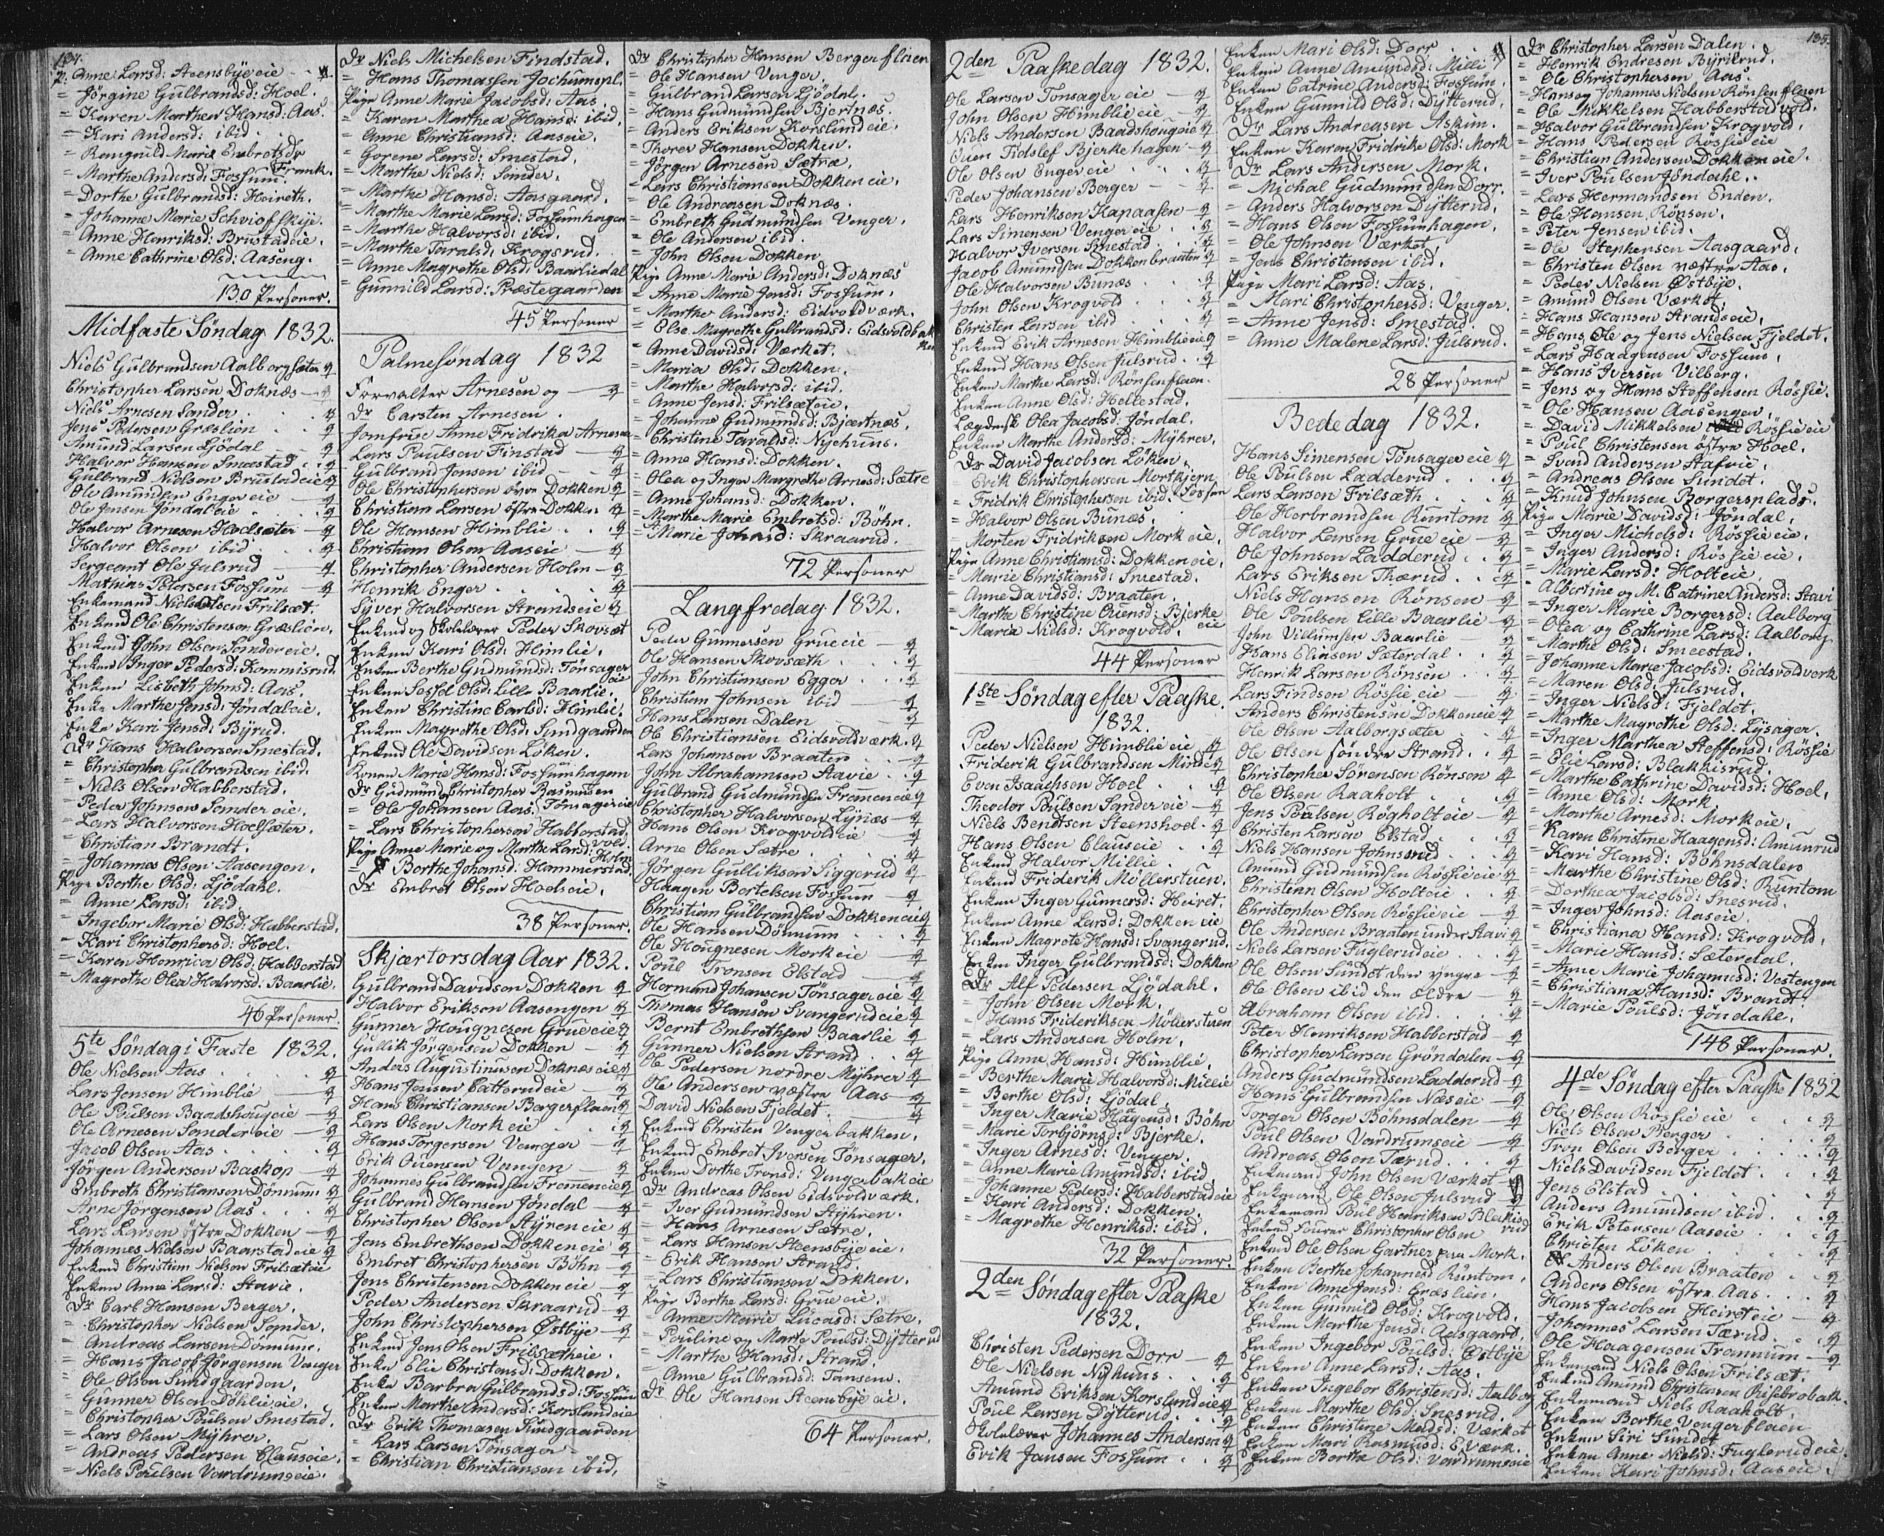 134.
P. Anne Larsd: Steensbyeeie . . q
= Jörgine Gulbrandsd: Hoel.
= Karen Marthea Hansd: Aas.
= Kari Andersd: ibid.
= Marie Embretsdr Frank.
= Marthe Andersd: Fossum.
= Dorthe Gulbrandsd: Heireth.
= Johanne Marie
= Anne Henriksd: Brustadeie.
= Anne Cathrine Olsd: Aaseng.
130 Personer.
Midfaste Söndag 1832.
Niels Gulbrandsen Aalborgsæter q
Christopher Larsen Doknes — q
Niels Arnesen Sander . . q
Jens Pedersen Græslien . . q
Amund Larsen Ljödal — q
Halvor Hansen Smestad . . q
Gulbrand Nielsen Brustadeie q
Ole Amundsen Engereie — q
Ole Jensen Jöndaleie . . q
Halvor Arnesen Hoelsæter — q
Halvor Olsen ibid . . q
Sergeant Ole Julsrud — q
Mathias Petersen Fossum — q
Enkemand Niels Olsen Frilsæt.
Enkemd Ole Christensen Græslien.
Enkemd John Olsen Sandereie.
Enken Inger Pedersd: Kommisrud
Enken Lisbeth Johnsd: Aas.
Enke Marthe Jensd: Jöndaleie.
Enke Kari Jensd: Byrud.
Dr Hans Halvorsen Smestad.
= Christopher Gulbrandsen ibid.
= Niels Olsen Habberstad.
= Peder Johnsen Sander eie.
= Lars Halvorsen Hoelsæter.
= Christian Brandt.
= Johannes Olsen Aasengen.
Pige Berthe Olsd: Ljödahl.
= Anne Larsd: ibid.
= Ingebor Marie Olsd: Habberstad.
= Kari Christophersd: Hoel.
= Karen Henrica Olsd: Habberstad
= Magrethe Olea Halvorsd: Baarlie.
46 Personer.
5te Söndag i Faste 1832.
Ole Nielsen Aas . . q
Lars Jensen Himblie — q
Ole Poulsen Baadshougeie — q
Ole Arnesen Sandereie — q
Jacob Olsen Aas . . q
Jörgen Andersen Baskop — q
Embreth Christiansen Dönnum q
Arne Jörgensen Aas . . q
Lars Larsen östre Dokken — q
Johannes Nielsen Baarstadeie q
Enkemd Christian Nielsen Frilsæteie
Enken Anne Larsd: Stavie.
Dr Carl Hansen Berger.
= Christopher Nielsen Sander.
= Andreas Larsen Dönnum.
= Hans Jacob Jörgensen Venger
= Ole Olsen Sundgaarden.
= Gunner Olsen Döhlieeie.
= Christopher Poulsen Smestad.
= Lars Olsen Myhrer.
= Andreas Pedersen Clauseie.
= Niels Poulsen Vardrumseie.
Dr Niels Michelsen Findstad.
= Hans Thomassen Jochumspl.
Pige Anne Marie Jacobsd: Aas.
= Karen Marthea Hansd: ibid.
= Anne Christiansd: Aaseie.
= Gorene Larsd: Smestad.
= Marthe Nielsd: Sander.
= Marthe Hansd: Aasgaard.
= Marthe Marie Larsd: Fossumhagen
= Marthe Halvorsd: ibid.
= Marthe Taralsd: Krogsrud.
= Anne Magrethe Olsd: Baarliedal
= Gunnild Larsd: Præstegaarden
45 Personer
Palmesöndag 1832
Forvalter Arnesen og — q
Dr Carsten Arnesen .
Jomfrue Anne Fridrika Arnesen
Lars Paulsen Finstad — q
Gulbrand Jensen ibid — q
Ole Christophersen övre Dokken q
Christian Larsen östre Dokken q
Ole Hansen Himblie . . q
Christian Olsen Aaseie — q
Christopher Andersen Holm — q
Henrik Enger . . q
Syver Halvorsen Strandseie q
Enkemd og Skolelærer Peder Skovsæt
Enken Kari Olsd: Himlie.
Enken Berthe Gudmundsd: Tönsagereie
Enken Sessel Olsd: Lille Baarlie.
Enken Christine Carlsd: Himlie.
Enken Magrethe Olsd: Sundgaarden
Enkemd Ole Davidsen Löken.
Konen Marie Hansd: Fossumhagen
Dr Gudmund Christopher Rasmusen
= Ole Johansen Aas. Tönsagereie
= Lars Christophersen Habberstadvold.
Pige Anne Marie og Marthe Larsd: Holm
= Berthe Johansd: Hammerstad.
Dr Embret Olsen Hoelseie.
38 Personer.
Skjærtorsdag Aar 1832.
Gulbrand Davidsen Dokken q
Halvor Eriksen Aasengen — q
Gunner Hougnesen Grueeie q
Gullik Jörgensen Dokken — q
Anders Augustinusen Doknæseie q
Hans Jensen Catterudeie — q
Hans Christiansen Bergerflaen q
Lars Olsen Morkeie . . q
Hans Torgersen Venger — q
Erik Ouensen Vengen — q
Johannes Gulbrandsen Fremeneie q
Gulbrand Hansen Jöndal — q
Christopher Olsen Styreneie q
Jens Embrethsen Dokkeneie q
Embret Christophersen Böhn — q
Jens Christensen Dokkeneie — q
Peder Andersen Skraarud — q
John Christophersen Østbye — q
Enkemd Jens Olsen Frilsætheie.
Enke Elie Christensd: Dokken.
Enke Barbra Gulbrandsd: Fossum
Enken Marthe Andersd: Korslundeie
Dr Erik Thomasen Sundgaarden
= Lars Larsen Tönsager
= Christian Christiansen ibid.
Dr Christopher Hansen Bergerflaen
= Ole Hansen Venger.
= Gulbrand Larsen Ljödal.
= Hans Gudmundsen Bjertnæs.
= Anders Eriksen Korslundeie.
= Thorer Hansen Dokken.
= Jörgen Arnesen Sætræ.
= Lars Christiansen Dokkeneie.
= Ole Andreasen Doknæs.
= Embreth Gudmundsen Venger.
= Ole Andersen ibid.
= John Olsen Dokken
Pige Anne Marie Andersd: Doknæs
= Anne Marie Jensd: Fossum.
= Marthe Andersd: Eidsvoldværk.
= Else Magrethe Gulbrandsd: Eidsvoldbakken
= Anne Davidsd: Værket.
= Maria Olsd: Dokken.
= Marthe Halvorsd: ibid.
= Anne Jensd: Frilsæteie.
= Johanne Gudmundsd: Bjærtnæs.
= Christine Taralsd: Nyehuus.
= Anne Hansd: Dokken.
= Olea og Inger Margrethe Arnesd: Sætre
= Anne Johansd: Dokken.
= Marthe Marie Embretsd: Böhn.
= Marie Johnsd: Skraarud.
72 Personer
Langfredag 1832.
Peder Gunnersen Grueeie — q
Ole Hansen Skovsæth . . q
John Christiansen Egger . . q
Christian Johnsen ibid — q
Hans Larsen Dalen — q
Ole Christiansen Eidsvoldværk. q
Lars Johansen Braaten . . q
John Abrahamsen Stavie . . q
Gulbrand Gudmundsen Fremeneie q
Christopher Halvorsen Lynæs — q
Hans Olsen Krogvoldeie — q
Arne Olsen Sætre . . q
Jörgen Gulliksen Siggerud — q
Haagen Bertelsen Fossum — q
Christian Gulbrandsen Dokkeneie q
Ole Hansen Dönnum . . q
Ole Hougnesen Morkeie — q
Poul Tronsen Elstad — q
Hermand Johansen Tönsagereie q
Thomas Hansen Svangerudeie q
Bernt Embrethsen Baarlie q
Gunner Nielsen Strand . . q
Ole Pedersen nordre Myhrer q
Ole Andersen væstre Aas — q
David Nielsen Fjeldet . . q
Enkemd Christen Vengerbakken.
Enkemd Embret Iversen Tönsager.
Enken Dorthe Tronsd: Vengerbakeie
Dr Andreas Olsen Eidsvoldværk.
= Iver Gudmundsen Styhren.
= Hans Arnesen Sætre.
= Lars Hansen Steensbyeeie.
= Erik Hansen Strand.
= Lars Christiansen Dokken.
Pige Berthe Larsd: Grueeie.
= Anne Marie Lucasd: Sætre.
= Pauline og Marte Poulsd: Dytterud
= Marthe Hansd: Strand.
= Anne Gulbrandsd: Tansem.
Dr Ole Hansen Steensbyeeie.
64 Personer.
135.
2den Paaskedag 1832.
Ole Larsen Tonsagereie — q
John Olsen Himblieeie — q
Niels Andersen Baadshougeie q
Ouen Tidslef Bjerkehagen — q
Ole Olsen Engereie . . q
Peder Johansen Berger — q
Lars Henriksen Kapaasen — q
Lars Simensen Vengereie . . q
Halvor Iversen Smestad . . q
Jacob Amundsen Dokkenbraaten q
Ole Halvorsen Bunæs . . q
John Olsen Krogvold . . q
Christen Larsen ibid . . q
Enkemd Erik Arnesen Himblieeie q
Enkemd Hans Olsen Julsrud . . q
Enken Marthe Larsd: Rönsenflaen.
Enken Anne Olsd: Heltestad.
Lægdsk Olea Jacobsd: Jöndal.
Enken Marthe Andersd: Myhrer.
Dr David Jacobsen Löken.
= Erik Christophersen Mortkjern
= Fridrik Christophersen ibid. Fossum
= Halvor Olsen Bunæs.
= Morten Fridriksen Morkeie.
Pige Anne Christiansd: Dokkeneie.
= Marie Christiansd: Smestad.
= Anne Davidsd: Braaten.
= Marthe Christine Ouensd: Bjerkeeie
= Maria Nielsd: Krogvold.
44 Personer
1ste Söndag efter Paaske.
1832.
Peder Nielsen Himblieeie q
Friderik Gulbrandsen Minde q
Even Isaachsen Hoel . . q
Theodor Poulsen Sandereie — q
Niels Bendtsen Steenshoel . q
Hans Olsen Clauseie . . q
Enkemd Halvor Millie.
Enkemd Friderik Möllerstuen.
Enken Inger Gunnersd: Heiret.
Enken Anne Larsd: Dokkeneie
Enken Magrete Hansd: Svangerud.
Enken Inger Gulbrandsd: Dokken
Dr Alf Pedersen Ljödahl.
= John Olsen Mork.
= Hans Frideriksen Möllerstuen
= Lars Andersen Holm.
Pige Anne Hansd: Himblie.
= Berthe Marie Halvorsd: Millie
= Berthe Olsd: Ljödal.
= Inger Marie Haagensd: Böhn
= Marie Torbjörnsd: Bjerke.
= Inger Arnesd: Venger.
= Anne Marie Amundsd: ibid
= Johanne Pedersd: Habberstadeie
= Kari Andersd: Dokken.
= Magrethe Henriksd: ibid.
32 Personer.
2den Söndag efter Paaske
1832.
Christen Pedersen Dorr — q
Ole Nielsen Nyhuus . . q
Amund Eriksen Korslundeie q
Poul Larsen Dytterud . . q
Skolelærer Johannes Andersen q
Erik Jansen Fossum . . q
Enken Mari Olsd: Dorr . . q
Enken Anne Amundsd: Millie
Enken Catrine Andersd: Fossum.
Enken Gunnild Olsd: Dytterud.
Dr Lars Andreasen Askim.
Enken Karen Fridrike Olsd: Mork
Dr Lars Andersen Mork.
= Michal Gudmundsen Dorr.
= Anders Halvorsen Dytterud.
= Hans Olsen Fossumhagen.
= Ole Johnsen Værket.
= Jens Christensen ibid.
Pige Mari Larsd: Aas.
= Mari Christophersd: Venger.
= Anne Jensd: Smestad.
= Anne Malene Larsd: Julsrud.
28 Personer
Bededag 1832.
Hans Simensen Tönsagereie q
Ole Poulsen Ladderud . . q
Lars Larsen Frilsæth . . q
Ole Herbrandsen Runtom q
Halvor Larsen Grueeie — q
Ole Johnsen Ladderud . . q
Lars Eriksen Thærud . . q
Niels Hansen Rönsen — q
Ole Poulsen Lille Baarlie — q
John Villumsen Baarlie — q
Hans Eliasen Sæterdal . . q
Henrik Larsen Rönsen . . q
Lars Findsen Rössieeie — q
Anders Christensen Dokkeneie q
Ole Olsen Aalborgsæter . . q
Ole Olsen söndre Strand . . q
Christopher Sörensen Rönsen q
Ole Olsen Raaholt . . q
Jens Poulsen Rögholteie — q
Christen Larsen Elstad . . q
Niels Hansen Johnsrud . . q
Amund Gudmundsen Rössieeie q
Christian Olsen Holteie . . q
Christopher Olsen Rössieeie — q
Ole Andersen Braaten under Stavi q
Niels Larsen Fuglerudeie . . q
Ole Olsen Sundet den yngre — q
Ole Olsen ibid den ældre — q
Abraham Olsen ibid . . q
Peter Henriksen Habberstad — q
Christopher Larsen Gröndalen — q
Anders Gudmundsen Ladderud q
Hans Gulbrandsen Næseie — q
Torger Olsen Böhnsdalen — q
Poul Olsen Vardrumseie — q
Andreas Olsen Tærud . . q
Enkemand John Olsen Værket — q
Enkemand Ole Olsen Julsrud q
Enkemand Poul Henriksen Blakisrud
Enkemd Lourer Christopher Olsen
Enkemd Ole Olsen Gartner paa Mork.
Enken Berthe Johannesd Runtom.
Enken Anne Jensd: Græslien.
Enken Gunnild Olsd: Krogvold.
Enken Marthe Jensd: Aasgaard.
Enken Ingebor Poulsd: Østbye
Enken Anne Larsd: Aas.
Enken Ingebor Christensd: Aalborg
Enken Marthe Olsd: Snesrud.
Enken Christine Madsd: Værket
Enken Mari Rasmusd: E. Værk.
Enken Berthe Olsd: Vardrumseie
Dr Christopher Larsen Dalen.
= Henrik Endresen Byrilrud.
= Ole Christophersen Aas.
= Hans og Johannes Nielsen Rönsenflaen
= Ole Mikkelsen Habberstadvold.
= Halvor Gulbrandsen Krogvold.
= Hans Pedersen Rossieeie
= Christian Andersen Dokkeneie.
= Iver Poulsen Jöndahl.
= Lars Hermandsen Enden.
= Ole Hansen Rönsen.
= Peter Jensen ibid.
= Ole Stephensen Aasgaard.
= Christen Olsen væstre Aas.
= Peder Nielsen Østbye.
= Amund Olsen Værket.
= Hans Hansen Strandseie.
= Hans Ole og Jens Nielsen Fjeldet.
= Lars Haagensen Fossum.
= Hans Iversen Vilberg.
= Jens og Hans Steffensen Rössie.
= Ole Hansen Aasengen.
= David Mikkelsen Rössieeie
= Poul Christensen östre Hoel.
= Svend Andersen Stafvie.
= Andreas Olsen Sundet.
= Knud Johnsen Borgersplads.
Pige Marie Davidsd: Jöndal.
= Inger Michelsd: Rössieeie.
= Inger Andersd: Rössieeie.
= Marie Larsd: Holteie
= Albertine og M. Catrine Andersd: Stavi
= Inger Marie Borgersd: Aalborg
= Olea og Cathrine Larsd: Aalborg.
= Marthe Olsd: Smeestad.
= Johanne Marie Jacobsd: Eidsvoldværk
= Maren Olsd: Julsrud.
= Inger Nielsd: Fjeldet.
= Marthe Magrethe Olsd: Lysager.
= Inger Marthea Steffensd: Rössie
= Elie Larsd: Blakkisrud.
= Marthe Cathrine Davidsd: Hoel.
= Anne Olsd: Mork.
= Marthe Arnesd: Morkeie.
= Karen Christine Haagensd: Amunrud
= Kari Hansd: Böhnsdalen
= Marthe Christine Olsd: Runtom
= Dorthea Jacobsd: Snesrud.
= Inger Johnsd: Aaseie.
= Christiana Hansd: Krogvold.
= Marie Hansd: Sæterdal.
= Anne Marie Johannesd: Vestengen
= Christiana Hansd: Brandt.
= Marie Poulsd: Jöndahl.
148 Personer.
4de Söndag efter Paaske 1832
Ole Olsen Rössieeie . . q
Niels Olsen Berger . . q
Tron Olsen Berger . . q
Niels Davidsen Fjeldet . . q
Jens Elstad . . q
Anders Amundsen ibid . . q
Erik Petersen Aaseie . . q
Christen Löken . . q
Anders Olsen Braaten — q
Anders Olsen östre Aas . . q
Hans Jacobsen Heireteie — q
Johannes Larsen Tærud . . q
Ole Haagensen Trannum — q
Enkemand Niels Olsen Frilsæt.
Enkemd Amund Christiansen Risebrobak.
Enkemand Niels Raaholt.
Enken Berthe Vengerflaen
Enken Siri Sundet
Enken Anne Nielsd: Fuglerudeie
Enken Kari Johnsd: Aaseie.